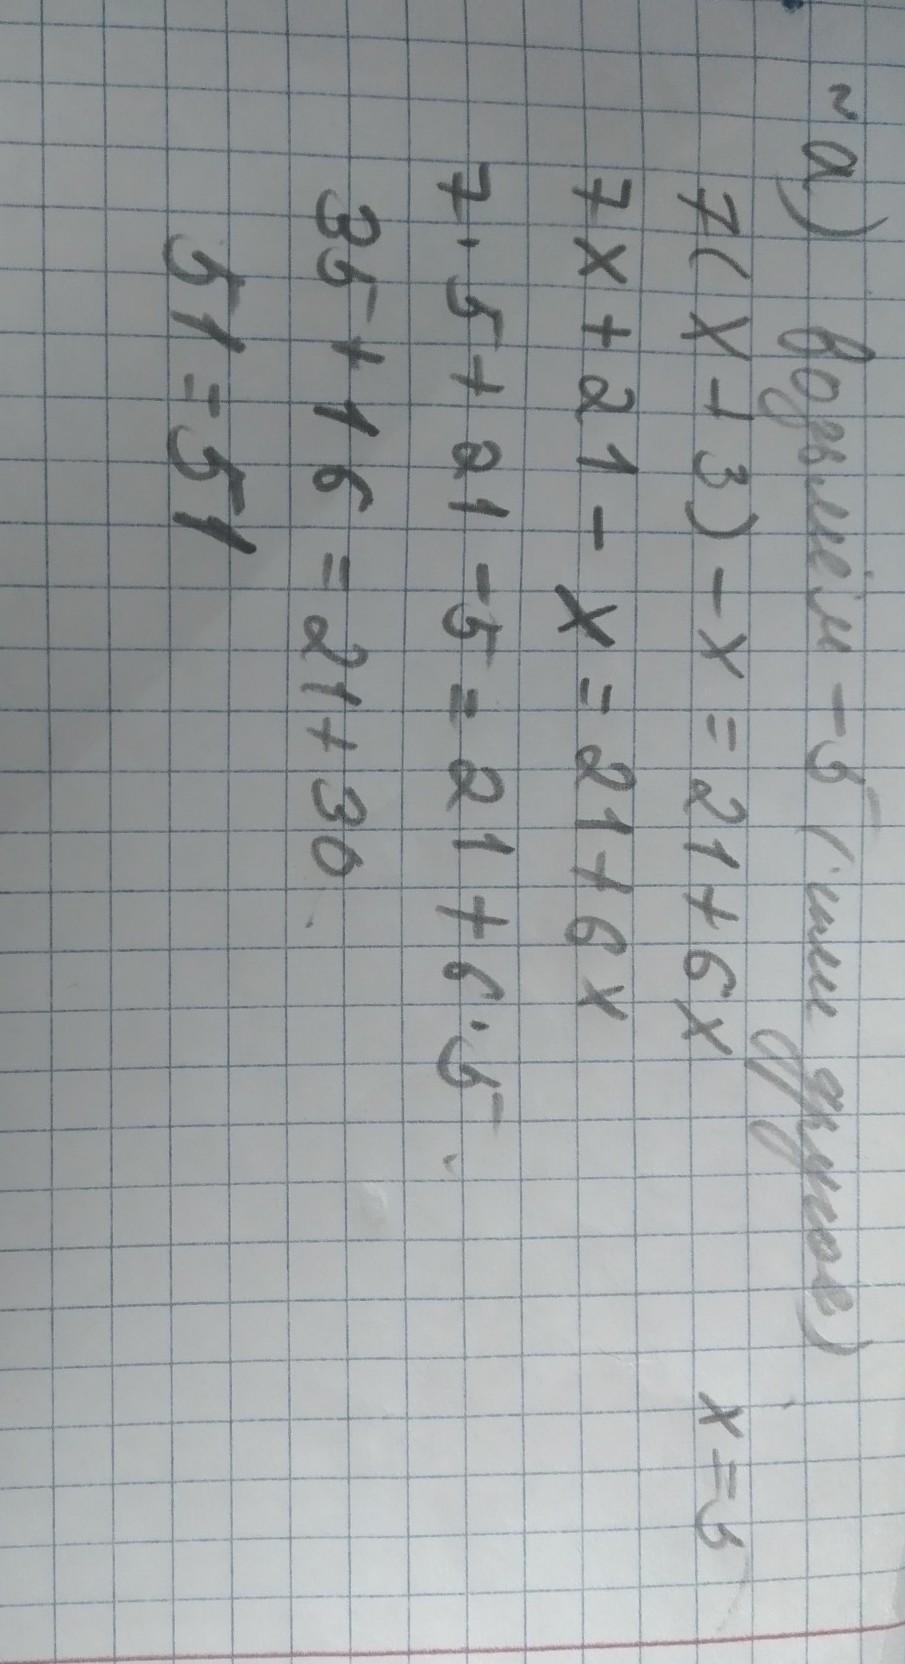 ~ а) возьмём - 5 (или другое)
7(x+3)-x=21+6x x=5
7x+21-x=21+6x
7·5+21-5=21+6·5.
35+16=21+30.
51=51